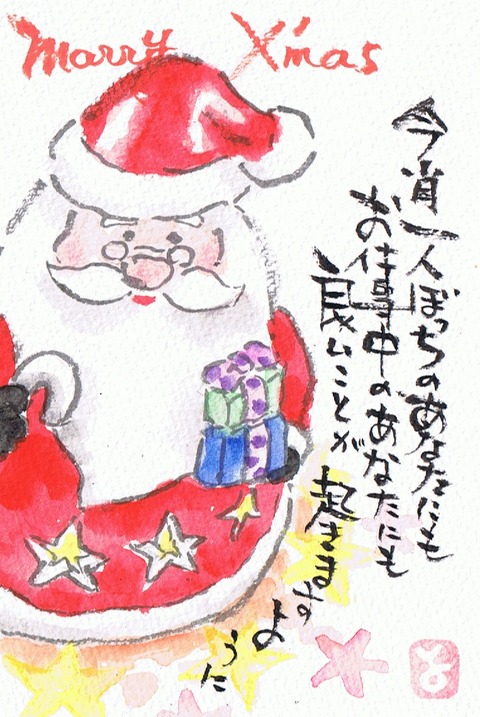 Marry X'mas
今宵一人ぼっちのあなたにも
お仕事中のあなたにも
良いことが起きますように